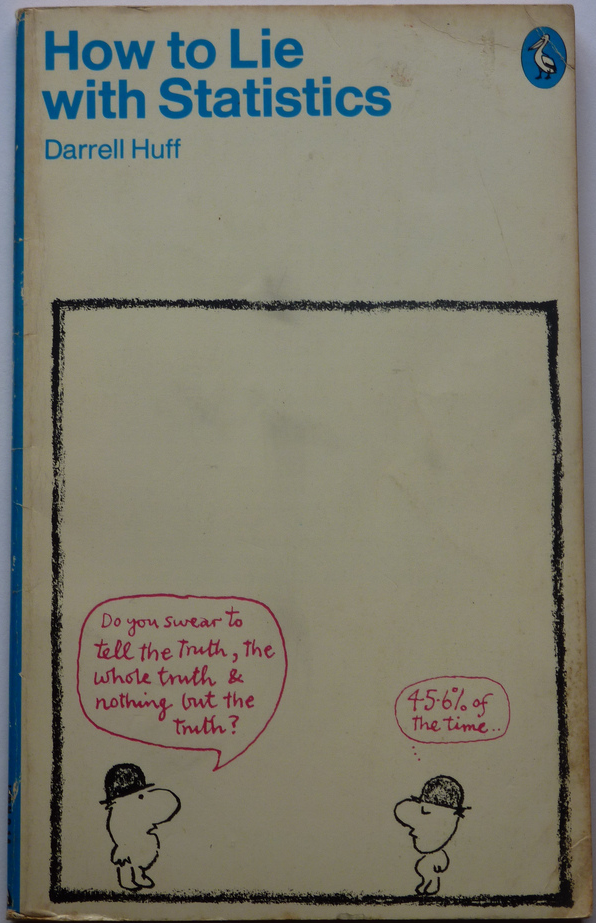 How to Lie
with Statistics
Darrell Huff
Do you swear to
tell the Truth, the
whole truth &
nothing but the
truth?
45·6% of
the time..